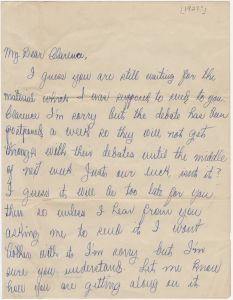 [1927?]
My Dear Clarence,
I guess you are still waiting for the
material which I was supposed to send to you.
Clarence I'm sorry but the debate has been
postponed a week so they will not get
through with their debates until the middle
of next week. Just our luck isn't it?
I guess it will be too late for you
then so unless I hear from you
asking me to send it I wont
bother with it. I'm sorry but I'm
sure you understand. Let me know
how you are getting along on it